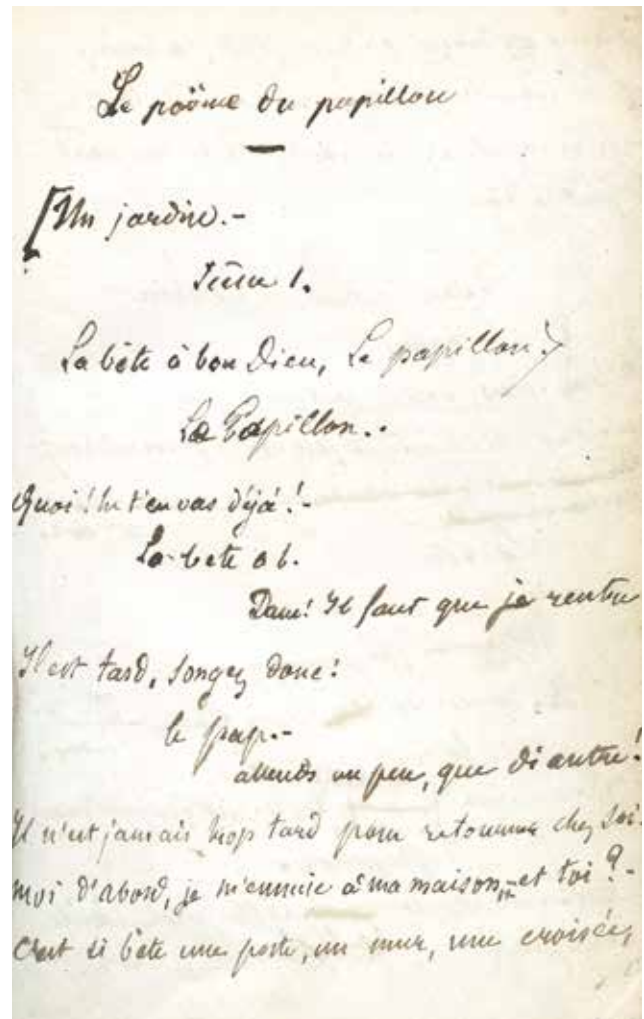 Le poëme du papillon
[Un jardin.-
Scène 1.
La bête à bon Dieu, Le papillon)
Le Papillon..
Quoi! tu t'en vas déjà!-
La bete a b.
Dame! Il faut que je rentre
Il est tard, songez donc!
le pap.-
attends un peu, que diantre!
Il n'est jamais trop tard pour retourner chez soi.
moi d'abord, je m'ennuie à ma maison, et toi?-
C'est si bête une porte, un mur, une croisée,